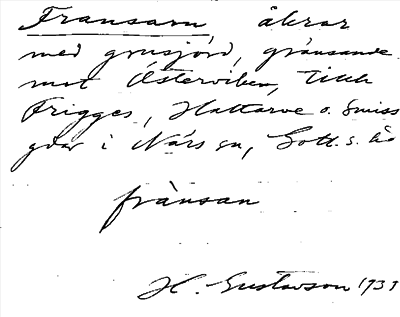 Fransarn åkrar
med grusjord, gränsande
mot Österviken, till
Frigges, Hattarve o. Smiss
gdar i Närs sn, Gotl. s. hd
frànsan
H. Gustavson 1933